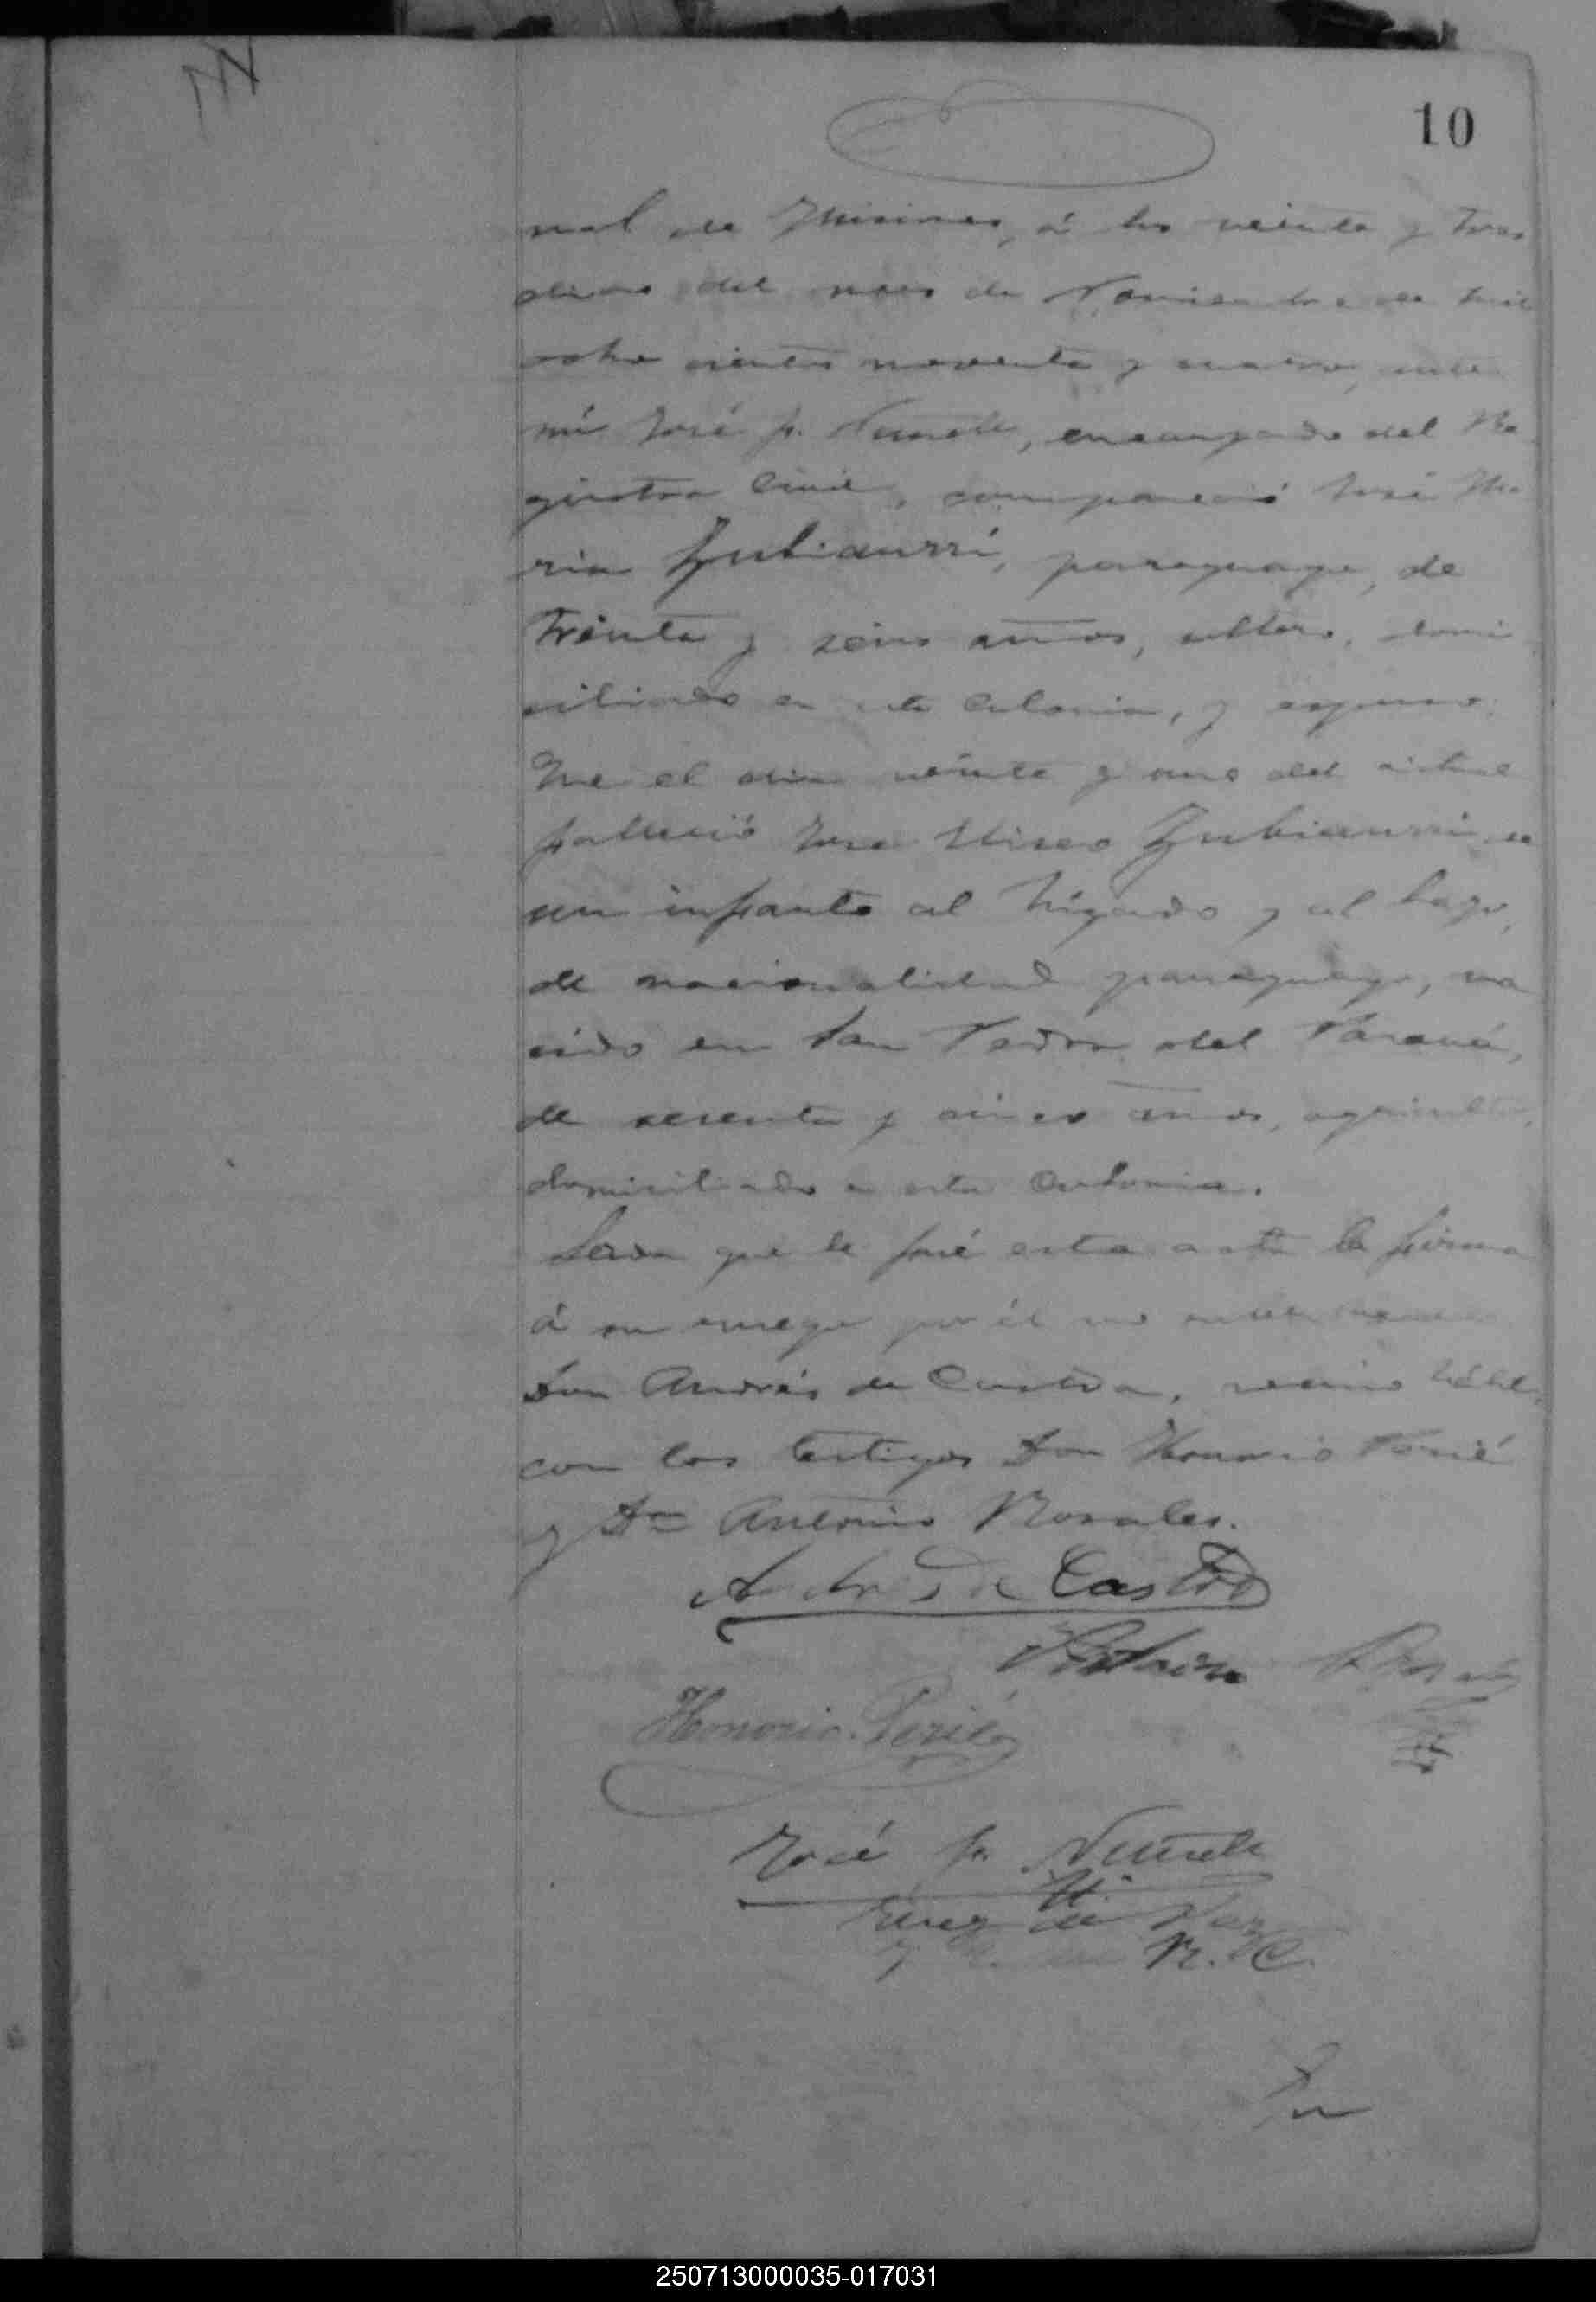 10
nal de Misiones, á los veinte y tres
dias del mes de Noviembre de mil
ocho cientos noventa y cuatro, ante
mi José F. Nuñes, encargado del Re
gistro Civil, compareció José Ma
ria Zubiaurri, paraguayo, de
treinta y seis años, soltero, domi
ciliado en esta Colonia, y expuso:
Que el dia veinte y uno del actual
falleció José Eliseo Zubiaurri, de
un infarto al higado y al bazo,
de nacionalidad paraguayo, na
cido en San Pedro del Paraná,
de sesenta y cinco años, agricultor,
domiciliado en esta Colonia.
Leida que le fué esta acta la firma
á su ruego por él no
Don Andrés de Castro, vecino hábil,
con los testigos Don Honorio Perié
y Dn Antonio Rosales.
Andrés de Castro
Honorio Perié
José F.
Enc de
y R. C.
250713000035-017031